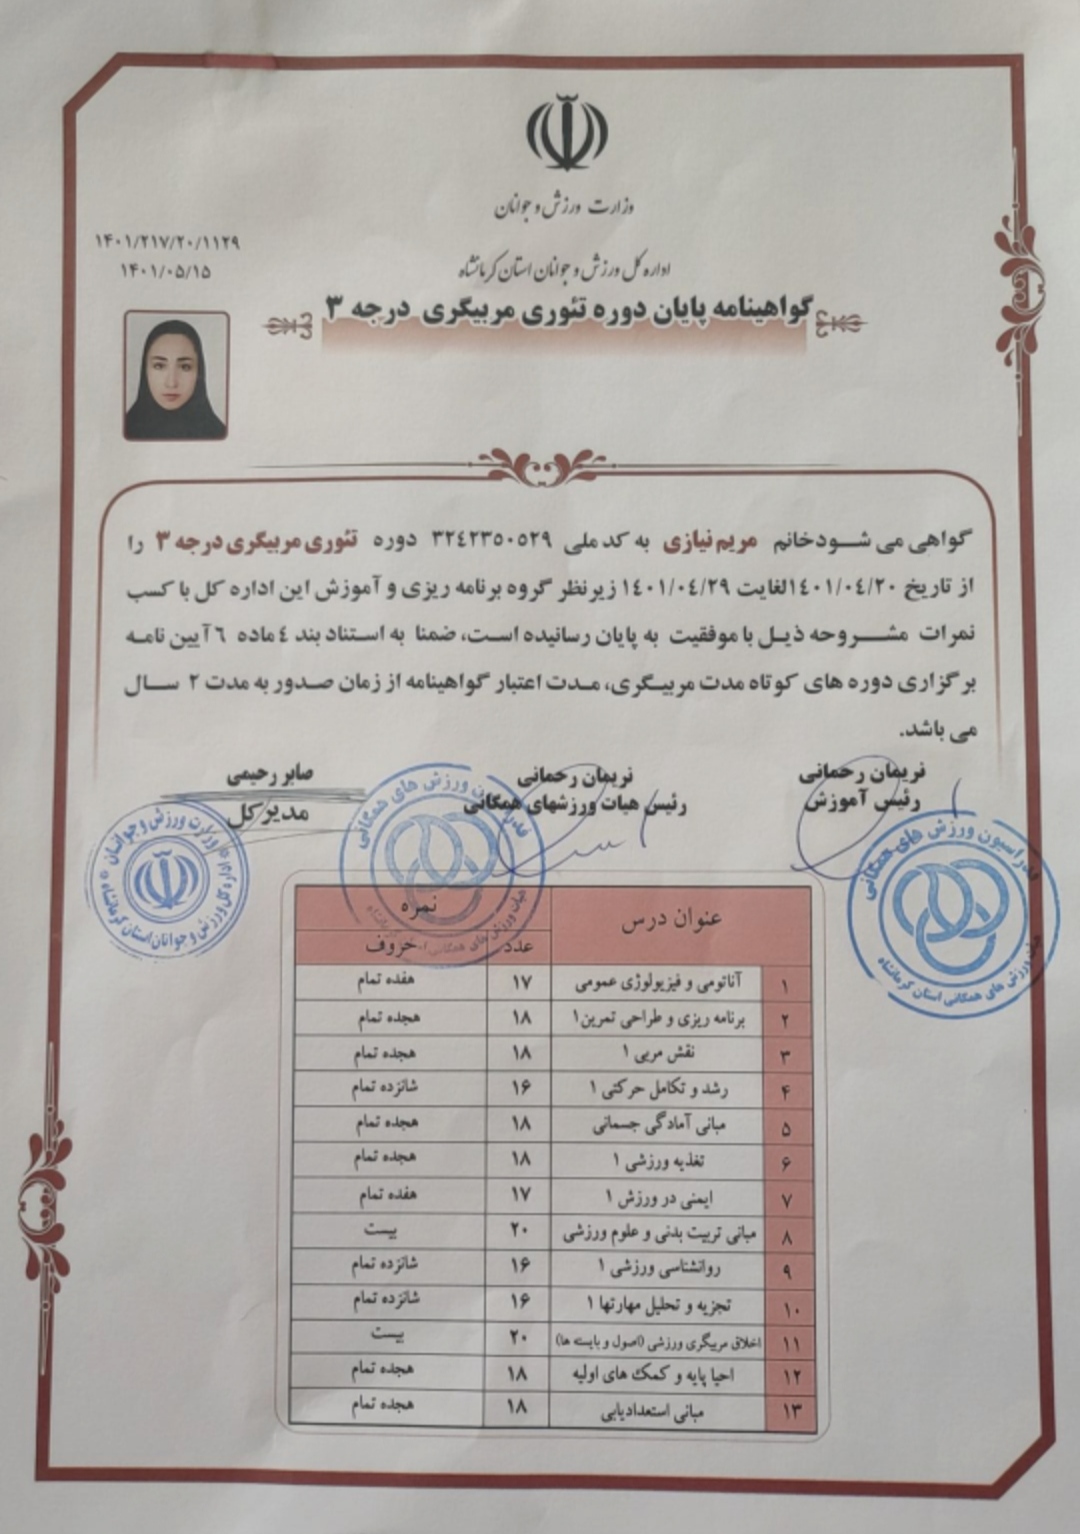 وزارت ورزش و جوانان
اداره کل ورزش و جوانان استان کرمانشاه
۱۴۰۱/۲۱۷/۲۰/۱۱۲۹
۱۴۰۱/۰۵/۱۵
گواهینامه پایان دوره تئوری مربیگری درجه ۳
گواهی می شود خانم مریم نیازی به کد ملی ۳۲٤۲۳٥۰٥۲۹ دوره تئوری مربیگری درجه ۳ را
از تاریخ ۱٤۰۱/۰٤/۲۰ لغایت ۱٤۰۱/۰٤/۲۹ زیر نظر گروه برنامه ریزی و آموزش این اداره کل با کسب
نمرات مشروحه ذیل با موفقیت به پایان رسانیده است، ضمنا به استناد بند ٤ ماده ٦ آیین نامه
برگزاری دوره های کوتاه مدت مربیگری، مدت اعتبار گواهینامه از زمان صدور به مدت ۲ سال
می باشد.
نریمان رحمانی
رئیس آموزش
نریمان رحمانی
رئیس هیات ورزشهای همگانی
صابر رحیمی
مدیر کل
فدراسیون ورزش های همگانی
هیات ورزش های همگانی استان کرمانشاه
فدراسیون ورزش های همگانی
هیات ورزش های همگانی استان کرمانشاه
وزارت ورزش و جوانان
اداره کل ورزش و جوانان استان کرمانشاه
عنوان درس نمره
عدد حروف
۱ آناتومی و فیزیولوژی عمومی ۱۷ هفده تمام
۲ برنامه ریزی و طراحی تمرین۱ ۱۸ هجده تمام
۳ نقش مربی ۱ ۱۸ هجده تمام
۴ رشد و تکامل حرکتی ۱ ۱۶ شانزده تمام
۵ مبانی آمادگی جسمانی ۱۸ هجده تمام
۶ تغذیه ورزشی ۱ ۱۸ هجده تمام
۷ ایمنی در ورزش ۱ ۱۷ هفده تمام
۸ مبانی تربیت بدنی و علوم ورزشی ۲۰ بیست
۹ روانشناسی ورزشی ۱ ۱۶ شانزده تمام
۱۰ تجزیه و تحلیل مهارتها ۱ ۱۶ شانزده تمام
۱۱ اخلاق مربیگری ورزشی (اصول و بایسته ها) ۲۰ بیست
۱۲ احیا پایه و کمک های اولیه ۱۸ هجده تمام
۱۳ مبانی استعدادیابی ۱۸ هجده تمام